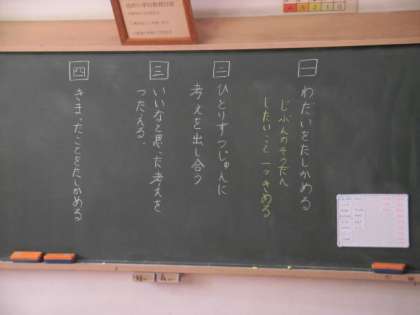 一 わだいをたしかめる
じぶんのそうだん
したいこと 一つきめる
二 ひとりずつじゅんに
考えを出し合う
三 いいなと思った考えを
つたえる。
四 きまったことをたしかめる